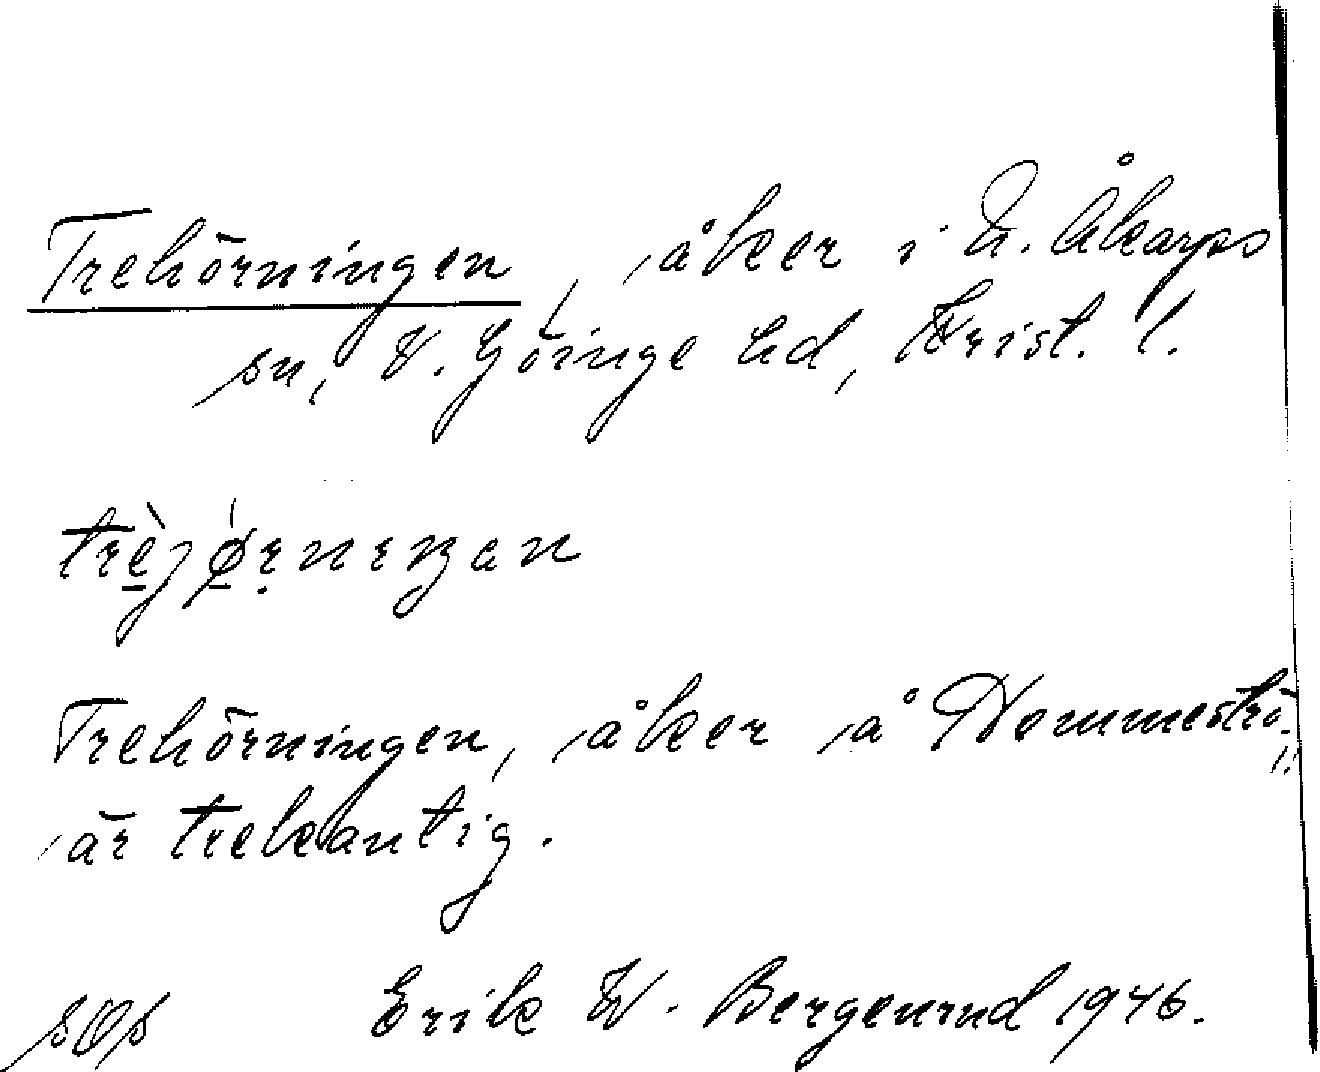 Trehörningen, åker i N. Åkarps
sn, V. Göinge hd, Krist. l.
Trehörningen, åker å Hommeströ,
är trekantig.
Erik W. Bergenrud 1946.